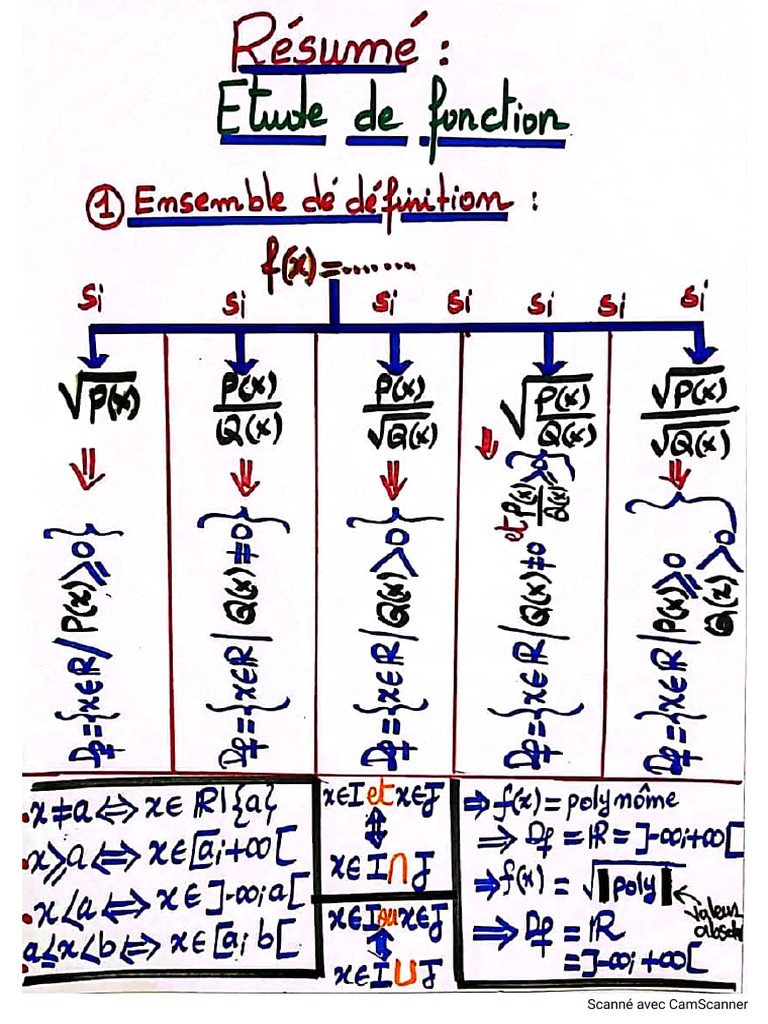 Résumé :
Etude de fonction
① Ensemble de définition :
f(x) = ........
Si Si Si Si Si Si Si
√P(x)
⇒
Df = {x∈ℝ / P(x) ≥ 0}
P(x)/Q(x)
⇒
Df = {x∈ℝ / Q(x) ≠ 0}
P(x)/√Q(x)
⇒
Df = {x∈ℝ / Q(x) > 0}
√(P(x)/Q(x))
⇒
Df = {x∈ℝ / Q(x) ≠ 0 et P(x)/Q(x) ≥ 0}
√P(x)/√Q(x)
⇒
Df = {x∈ℝ / P(x) ≥ 0
Q(x) > 0}
.x ≠ a ⇔ x ∈ ℝ \ {a}
.x ≥ a ⇔ x ∈ [a; +∞[
.x < a ⇔ x ∈ ]-∞; a[
.a ≤ x < b ⇔ x ∈ [a; b[
x∈I et x∈J
⇕
x ∈ I ∩ J
x∈I ou x∈J
⇕
x ∈ I ∪ J
⇒ f(x) = polynôme
⇒ Df = ℝ = ]-∞; +∞[
⇒ f(x) = √|poly|
valeur
absolu
⇒ Df = ℝ
= ]-∞; +∞[
Scanné avec CamScanner